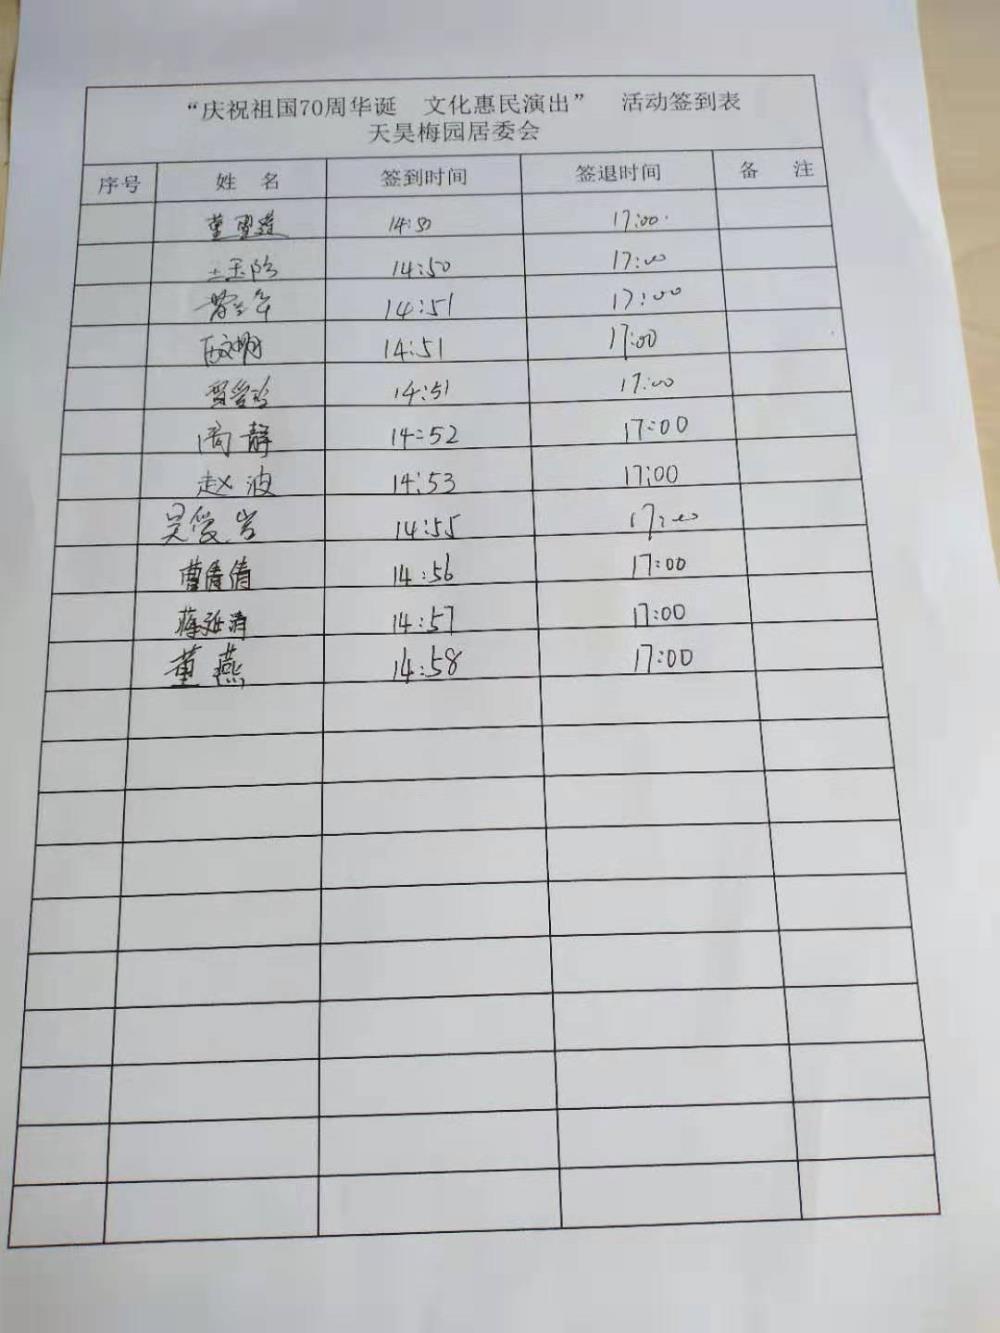 “庆祝祖国70周华诞　文化惠民演出”　活动签到表
天昊梅园居委会
序号 姓 名 签到时间 签退时间 备 注
14:50 17:00
14:50 17:00
14:51 17:00
14:51 17:00
14:51 17:00
周静 14:52 17:00
赵波 14:53 17:00
14:55 17:00
曹倩倩 14:56 17:00
14:57 17:00
董燕 14:58 17:00